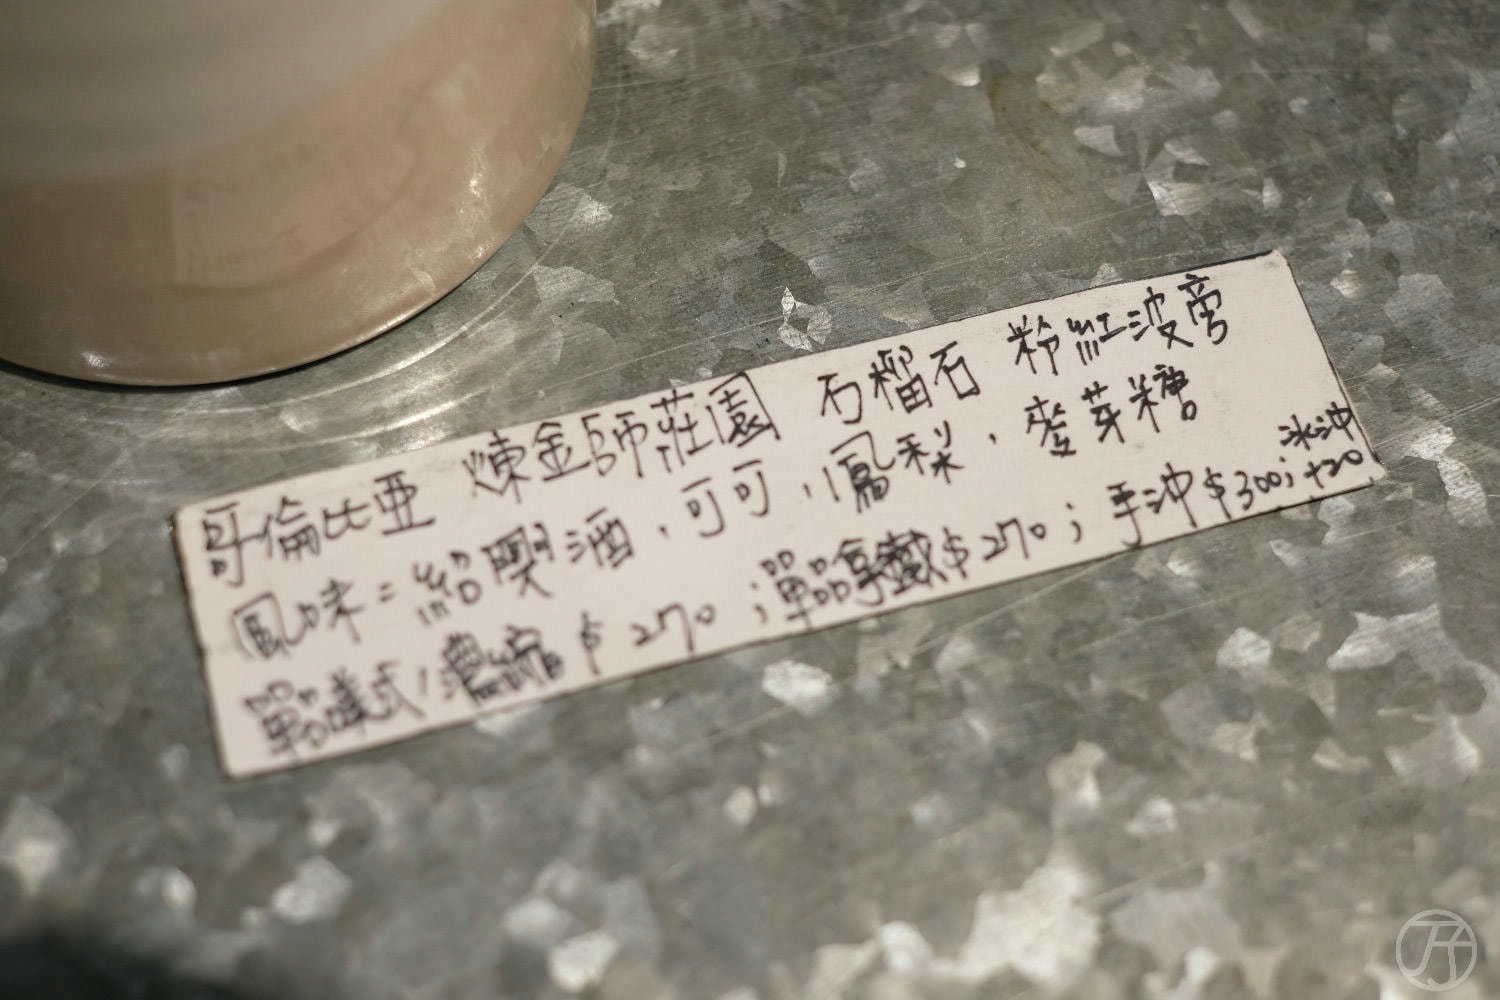 哥倫比亞 煉金師莊園 石榴石 粉紅波旁
風味=紹興酒,可可,鳳梨,麥芽糖
單品義式/濃縮 $270;單品拿鐵$270;手沖$300;冰沖+20